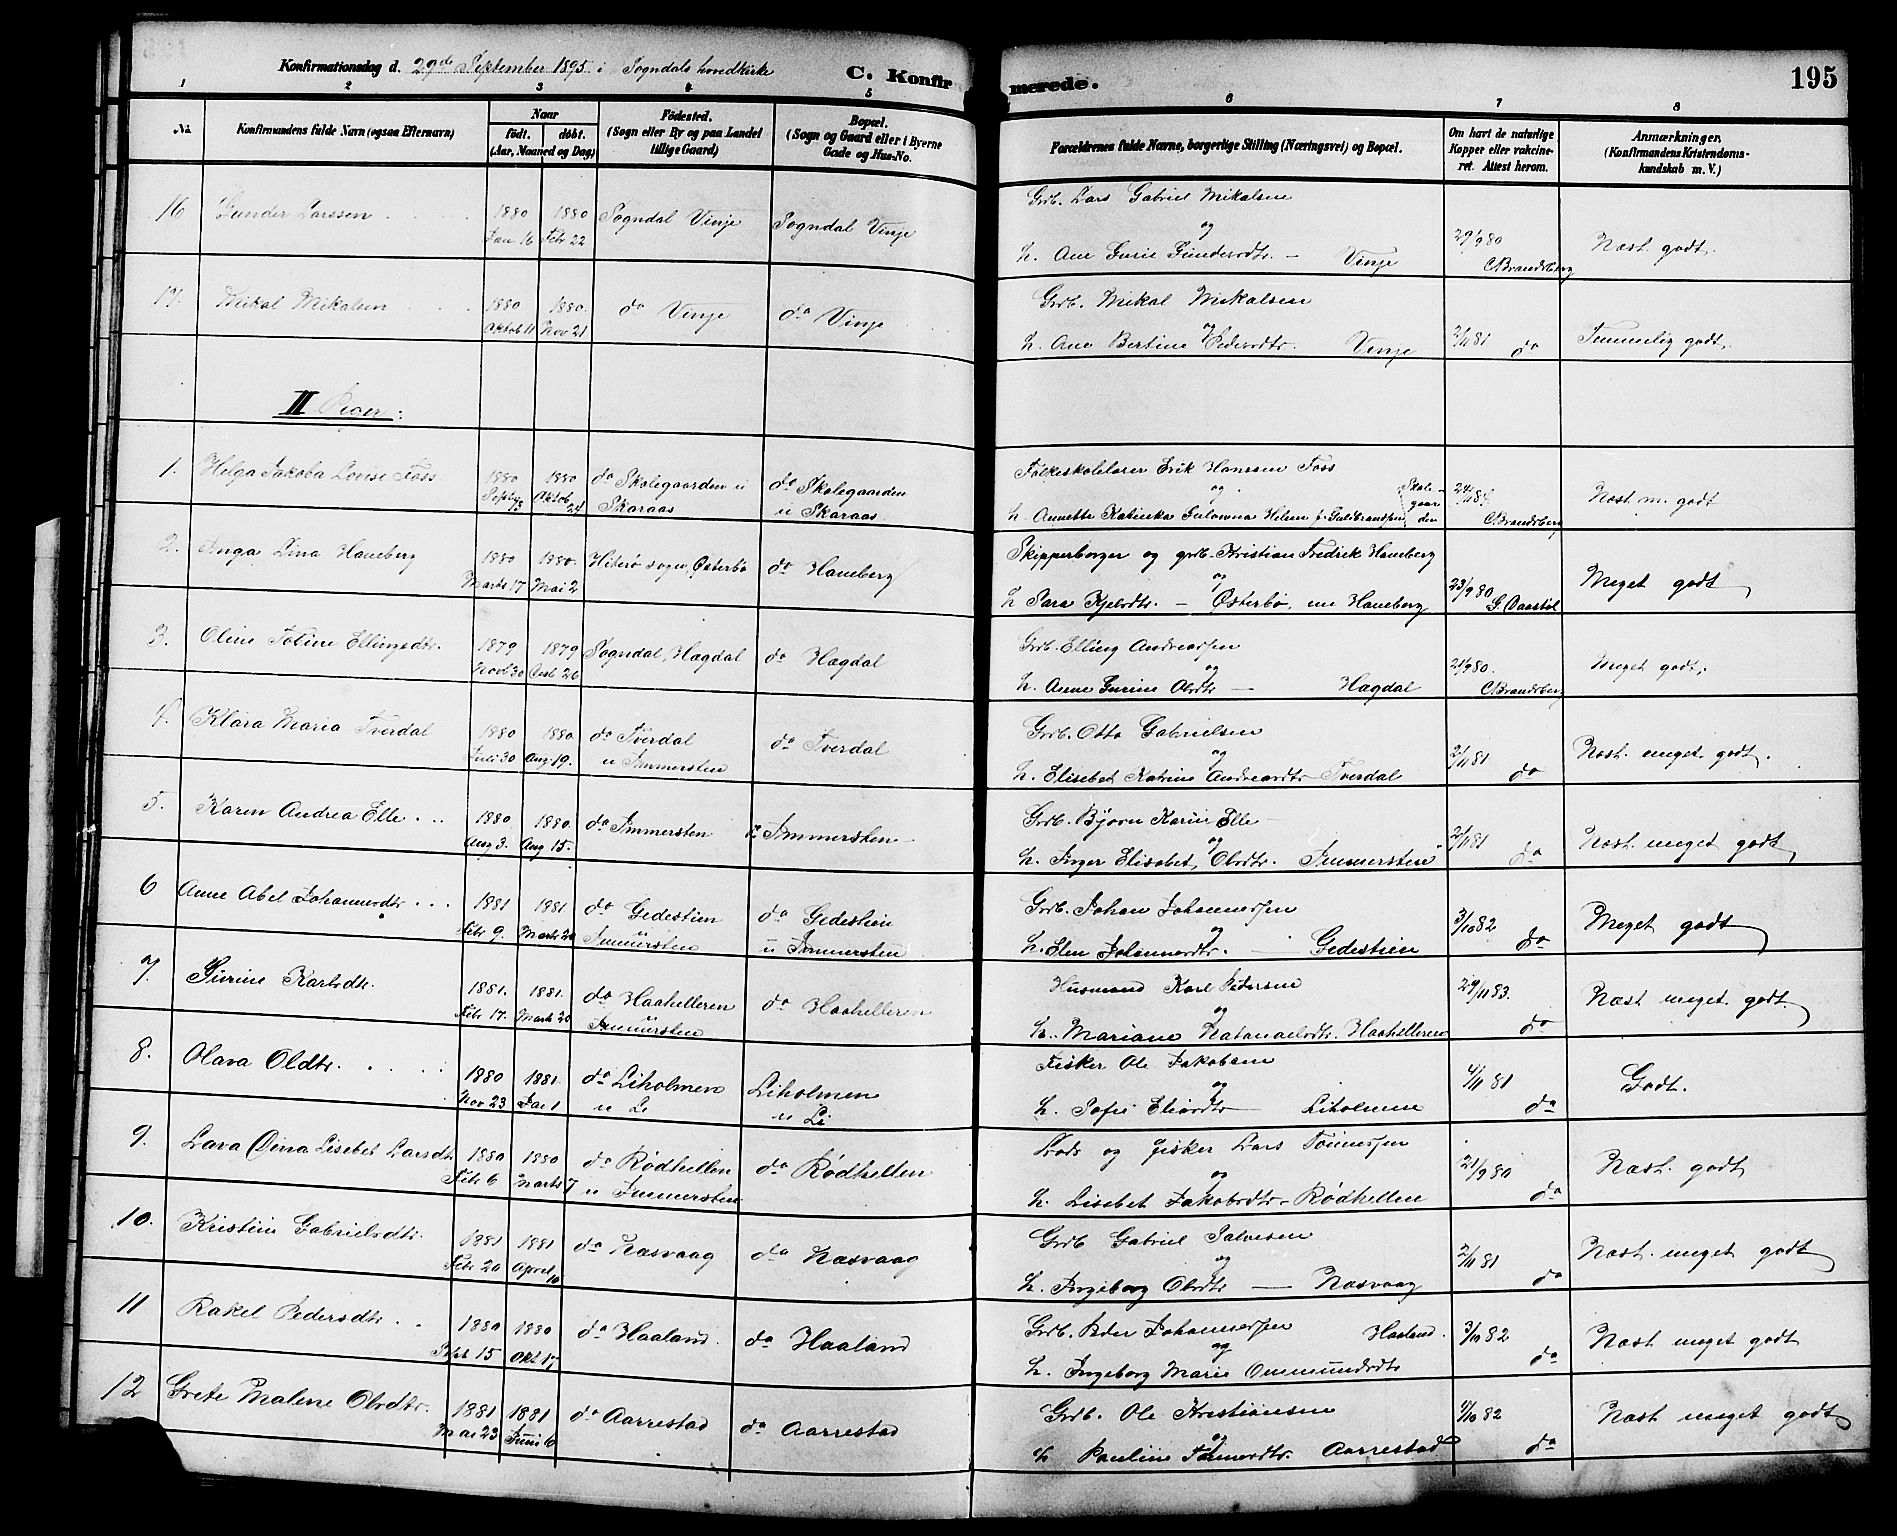 195
Konfirmationsdag d. 29de September 1895 i Sogndals hovedkirke C. Konfirmerede.
1 2 3 4 5 6 7 8
No. Konfirmandens fulde Navn (ogsaa Efternavn) Naar født. døbt. (Aar, Maaned og Dag) Fødested. (Sogn eller By og paa Landet tillige Gaard) Bopæl. (Sogn og Gaard eller i Byerne Gade og Hus-No. Forældrenes fulde Navne, borgerlige Stilling (Næringsvei) og Bopæl. Om havt de naturlige Kopper eller vakcineret. Attest herom. Anmærkninger, (Konfirmandens Kristendomskundskab m. V.)
16 Gunder Larssen 1880 1880 Sogndal Vinje Sogndal Vinje Grb. Lars Gabriel Mikalsen
Jan 16 Febr 22 og 29/9 80 Næst. godt.
h. Ane Gurie Gundersdtr. — Vinje CBrandsberg
17. Mikal Mikalsen 1880 1880. do Vinje do Vinje Grb. Mikal Mikalsen
Oktob 11 Nov 21 og
h. Ane Bertine Pedersdtr. Vinje 2/11 81 do Temmelig godt.
II Piger:
1. Helga Jakoba Lovise Foss 1880 1880 do Skolegaarden u do Skolegaarden Folkeskolelærer Erik Hanssen Foss
Oktob 24 Skaraas u Skaraas og Skolegaarden 24/11 84 Næst m. godt
h. Annette Katinka CBrandsberg
2. Inga Lina Haneberg 1880 1880. Hiterø sogn, Østerbø do Haneberg Skipperborger og grb. Kristian Fredrik Haneberg
Marts 17 Mai 2 og Meget godt
h Sara Kjelsdtr. — Østerbø, nu Haneberg 23/9 80 G. Daastøl
3. Oline Toline Ellingsdtr. 1879 1879 Sogndal, Hægdal do Hægdal Grb. Elling Andreassen
Novb 30 og 21/9 80. Meget godt.
h. Anne Gurine Olsdtr — Hægdal CBrandsberg
4. Klara Maria Tverdal 1880 1880 do Tverdal do Tverdal Grb. Otto Gabrielsen
Juli 30 Aug 19. u Immersten og 2/11 81 do Næst. meget godt.
h. Elisebet Katrine Andreasdtr Tverdal
5. Karen Andrea Elle 1880 1880. do Immersten do Immersten Grb. Bjørn Karin Elle
Aug 3. Aug 15. og 2/11 81 do Næst meget godt
h. Inger Elisabet Olsdtr. Immersten
6 Anne Abel Johannesdtr 1881 1881 do Gedestien do Gedestien Grb. Johan Johannessen
Febr 9. Marts 20 u Immersten u Immersten og 3/10 82 do Meget godt
h. Elen Johannesdtr. Gedestien
7. Sirine Karlsdtr. 1881. 1881. do Haahelleren do Haahelleren Husmand Karl Pedersen
Febr 17. Marts 20 u Immersten og 29/11 83. do Næst meget godt
h. Mariane Natanaelsdtr. Haahelleren
8. Olava Oldtr. 1880 1881. do Liholmen Liholmen Fisker Ole Jakobsen
Nov 23 Jan 1 u Li u Li og 4/11 81 do Godt.
h. Sofie Eliasdtr — Liholmen
9. Lava Dina Lisebet Larsdtr 1880 1880 do Rødhellen do Rødhellen Lods og fisker Lars Tønnessen
Febr 6 Marts 7 u Immersten og 21/9 80 do Næst. godt
h. Lisebet Jakobsdtr. Rødhellen
10. Kristine Gabrielsdtr. 1881 1881 do Næsvaag do Næsvaag Grb Gabriel Salvesen
Febr 20 April 10 og 2/11 81 do Næst. meget godt
h. Ingeborg Olsdtr — Næsvaag
11 Rakel Pedersdtr 1880 1880 do Haaland do Haaland Grb. Peder Johannessen Haaland.
15 Okt 17 og 3/10 82 do Næst meget godt
h. Ingeborg Marie Ommundsdtr
12 Grete Malene Olsdtr. 1881 1881 do Aarrestad do Aarrestad Grb. Ole Kristiansen
Mai 23 Juni 6 og 4/10 82 do Næst meget godt
h Pauline Tønnesdtr. Aarrestad